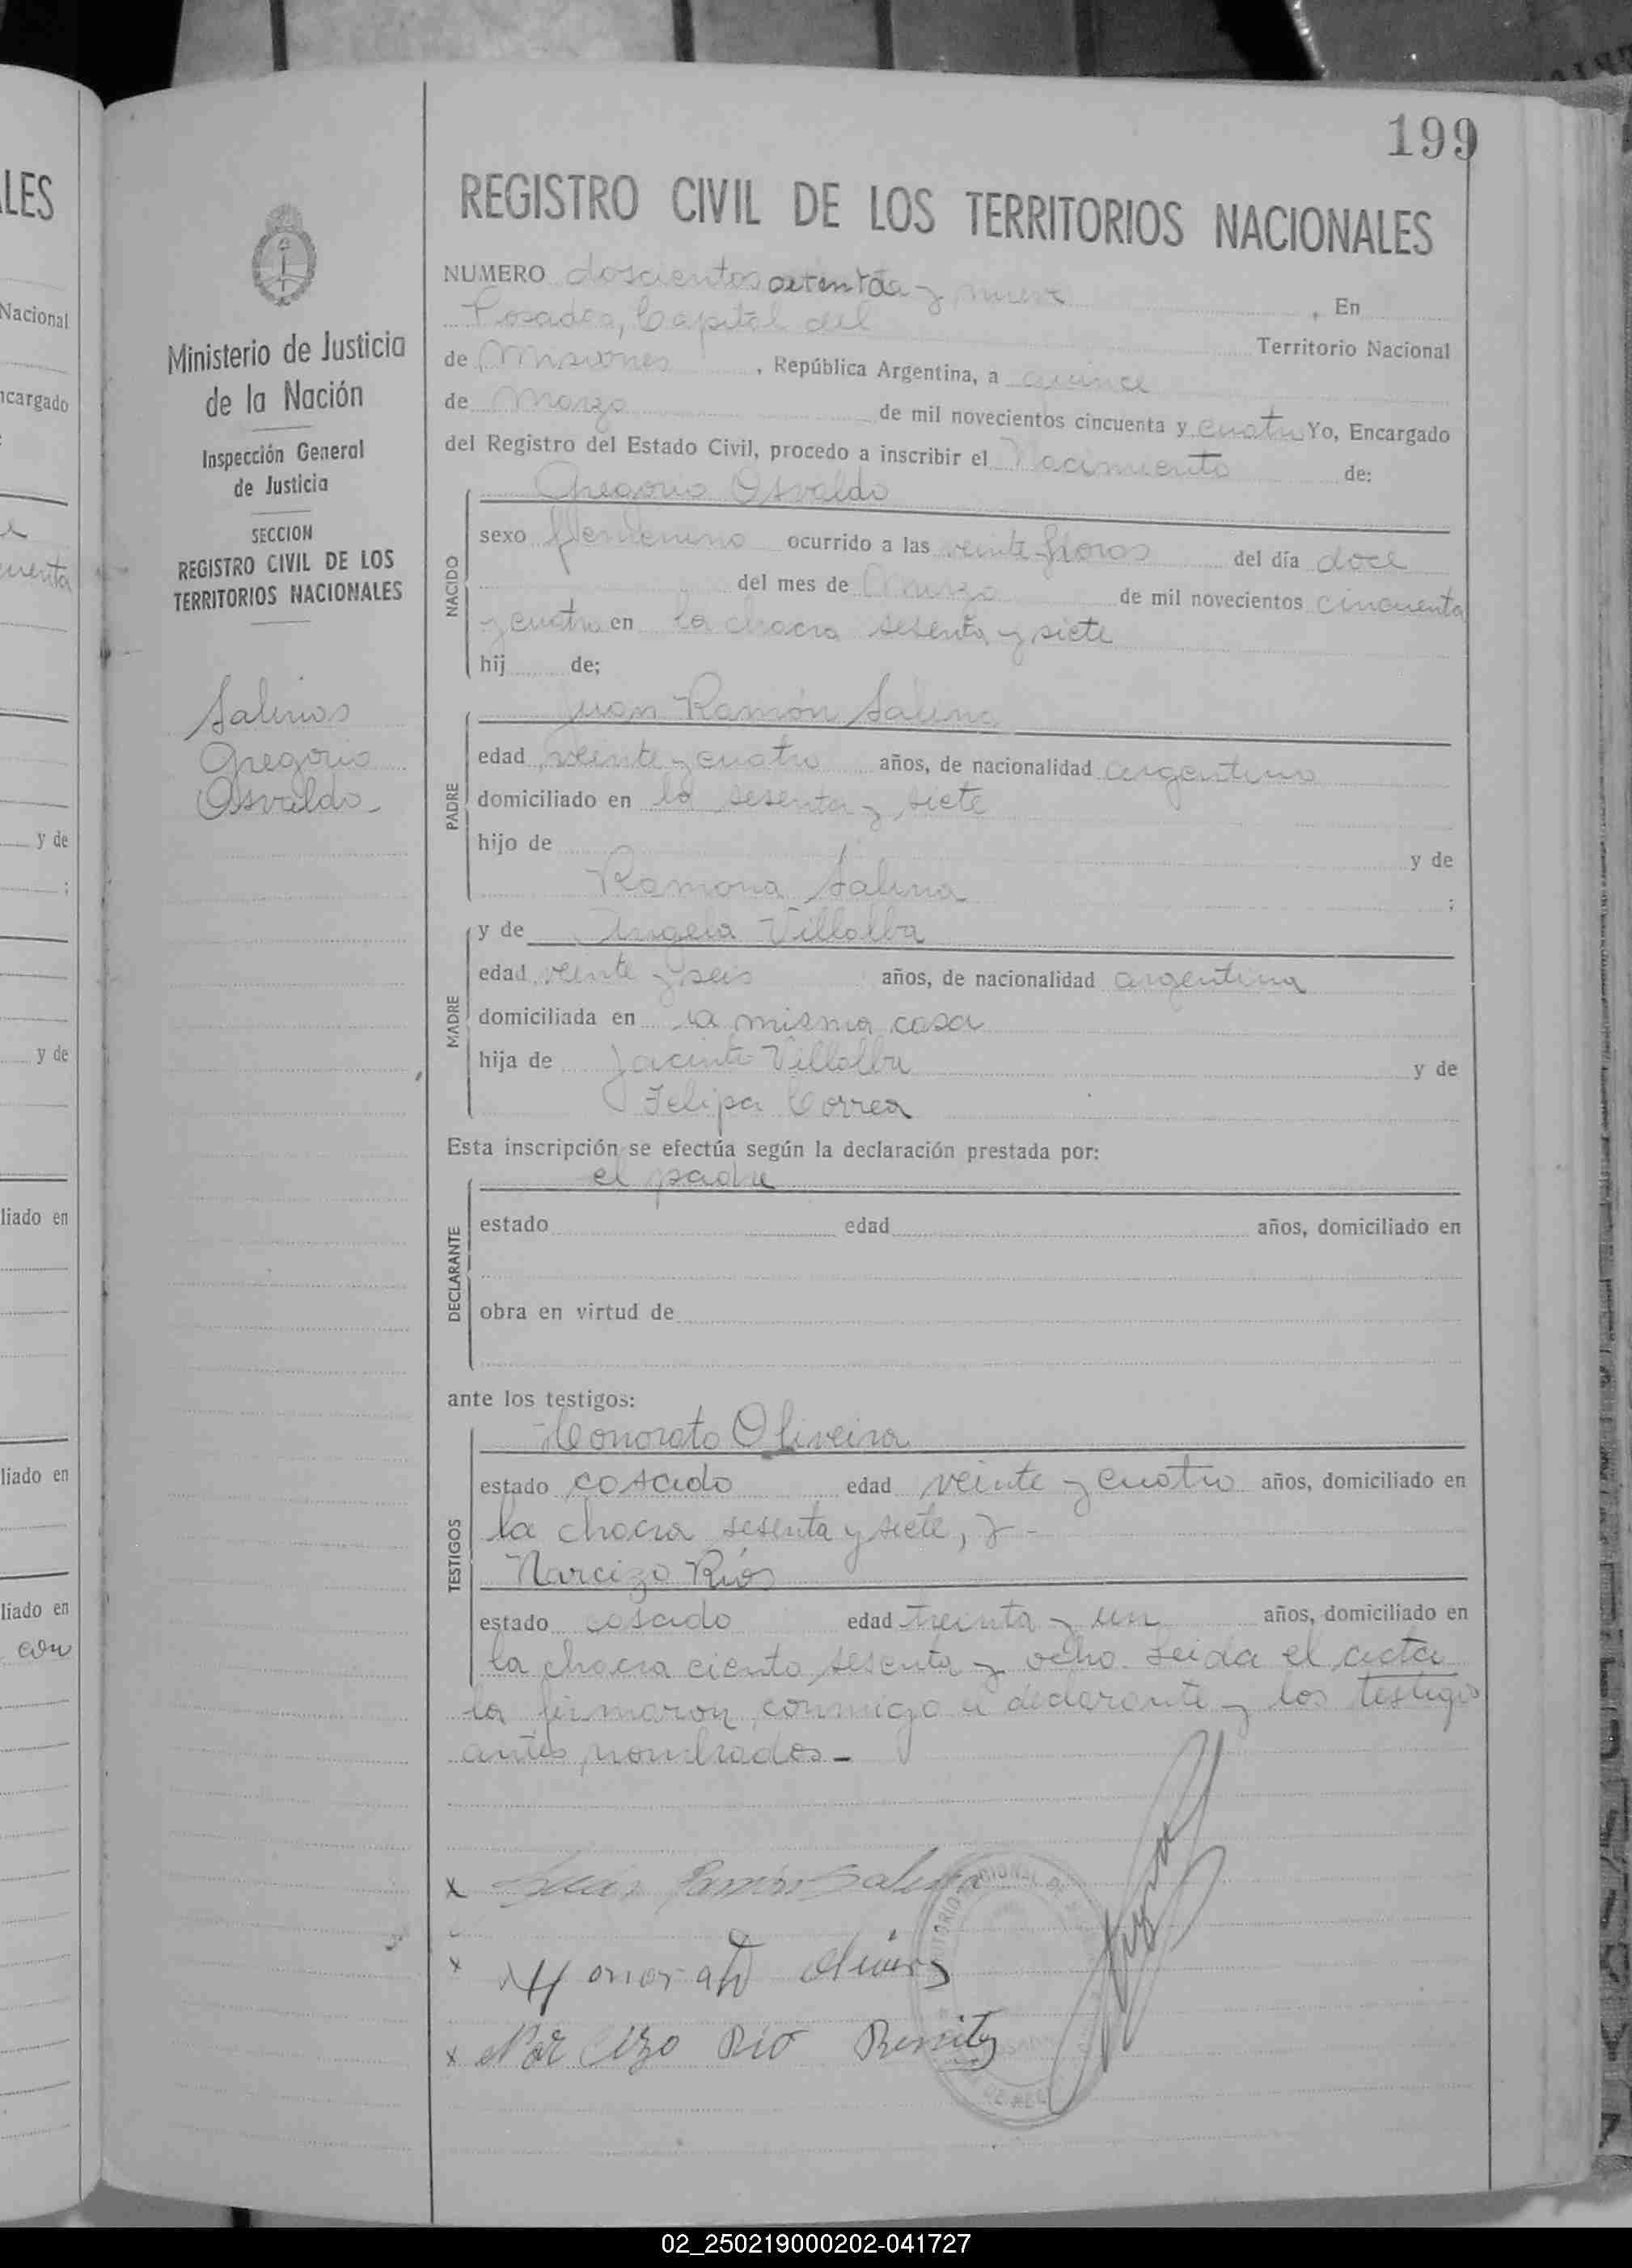 199
REGISTRO CIVIL DE LOS TERRITORIOS NACIONALES
NUMERO doscientos setenta y nueve, En
Posadas, Capital del Territorio Nacional
de Misiones, República Argentina, a quince
de Marzo de mil novecientos cincuenta y cuatro Yo, Encargado
del Registro del Estado Civil, procedo a inscribir el Nacimiento de:
NACIDO
Gregorio Osvaldo
sexo ocurrido a las veinte horas del día doce
del mes de Marzo de mil novecientos cincuenta
y cuatro en la chacra sesenta y siete
hij de;
PADRE
Juan Ramón Salina
edad veinte y cuatro años, de nacionalidad argentino
domiciliado en la sesenta y siete
hijo de y de
Ramona Salina ;
MADRE
y de Angela Villalba
edad veinte y seis años, de nacionalidad argentina
domiciliada en la misma casa
hija de Jacinto Villalba y de
Felipa Correa
Esta inscripción se efectúa según la declaración prestada por:
DECLARANTE
el padre
estado edad años, domiciliado en
obra en virtud de
ante los testigos:
TESTIGOS
Honorato Oliveira
estado casado edad veinte y cuatro años, domiciliado en
la chacra sesenta y siete, y -
Narcizo Ríos
estado casado edad treinta y un años, domiciliado en
la chacra ciento sesenta y ocho. Leida el acta
la firmaron conmigo el declarante y los testigos
antes nombrados.-
x Juan Ramón Salina
x Honorato
x Narcizo Rio Benitez
Ministerio de Justicia
de la Nación
Inspección General
de Justicia
SECCION
REGISTRO CIVIL DE LOS
TERRITORIOS NACIONALES
Salinas
Gregorio
Osvaldo
LES
Nacional
ncargado
y de
;
y de
liado en
liado en
liado en
con
02_250219000202-041727